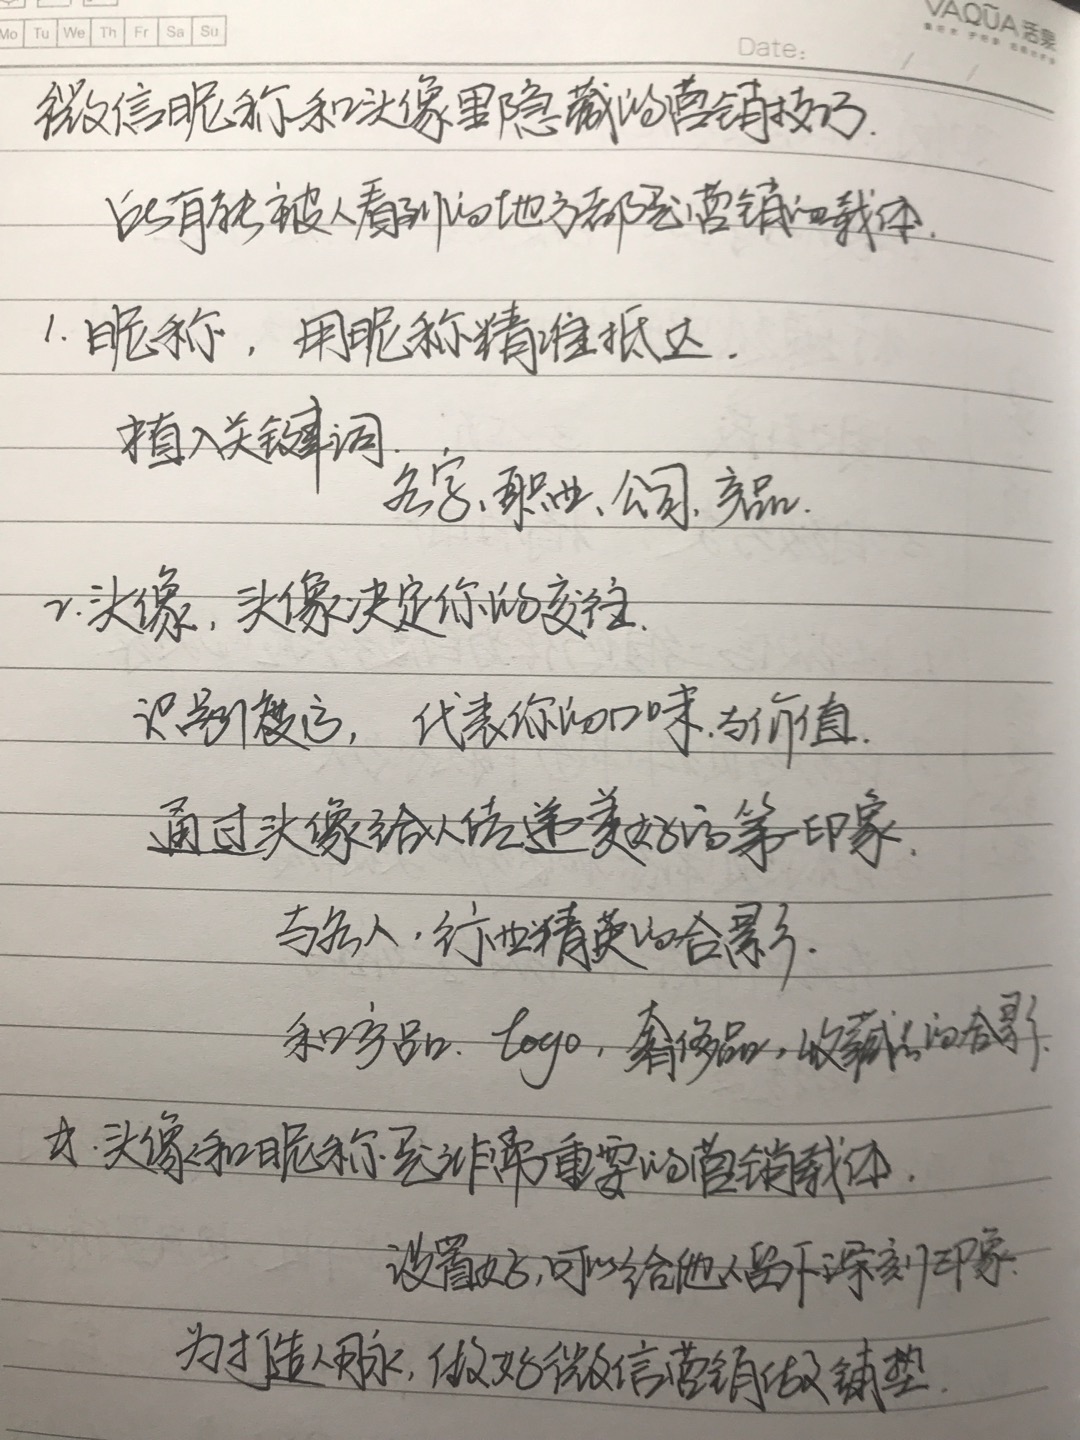 Mo Tu We Th Fr Sa Su
VAQUA活泉
Date: / /
微信昵称和头像里隐藏的营销技巧.
所有能被人看到的地方都是营销的载体.
1. 昵称, 用昵称精准抵达.
植入关键词.
名字、职业、公司、产品.
2. 头像, 头像决定你的交往.
识别度高, 代表你的口味与价值.
通过头像给人传递美好的第一印象.
与名人, 行业精英的合影.
和产品、logo, 奢侈品, 收藏品的合影.
头像和昵称是非常重要的营销载体.
设置好, 可以给他人留下深刻印象.
为打造人脉, 做好微信营销做铺垫.